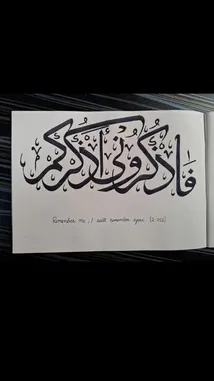 فَاذْكُرُونِي أَذْكُرْكُمْ
Remember me, I will remember you (2:152)